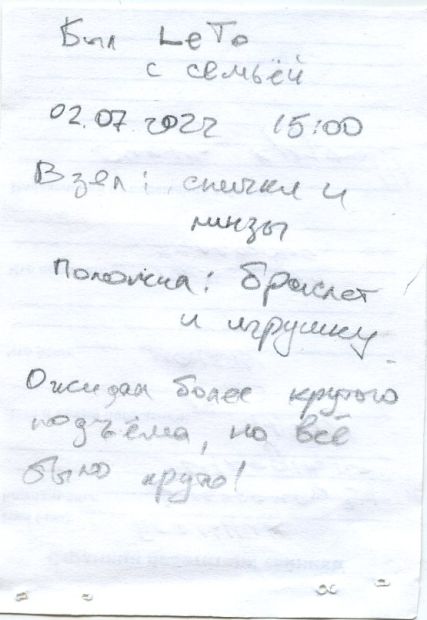 Был LeTo
с семьёй
02.07.2022 15:00
Взял: спички и
линзы
Положил: браслет
и игрушку
Ожидал более крутого
подъёма, но всё
было круто!